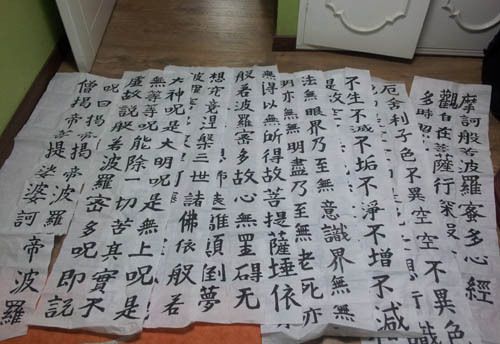 摩訶般若波羅蜜多心經
觀自在菩薩行深般
多時照
厄舍利子色不異空空不異色
識
不生不滅不垢不淨不增不減
是故空
法無眼界乃至無意識界無無
明亦無無明盡乃至無老死亦
無得以無所得故菩提薩埵依
般若波羅蜜多故心無罣礙无
離顛倒夢
想究竟涅槃三世諸佛依般若
波羅蜜
大神呪是大明呪是無上呪是
無等等呪能除一切苦真實不
虛故說般若波羅蜜多呪即說
呪曰揭帝揭帝波羅帝波羅
僧揭帝菩提娑婆訶